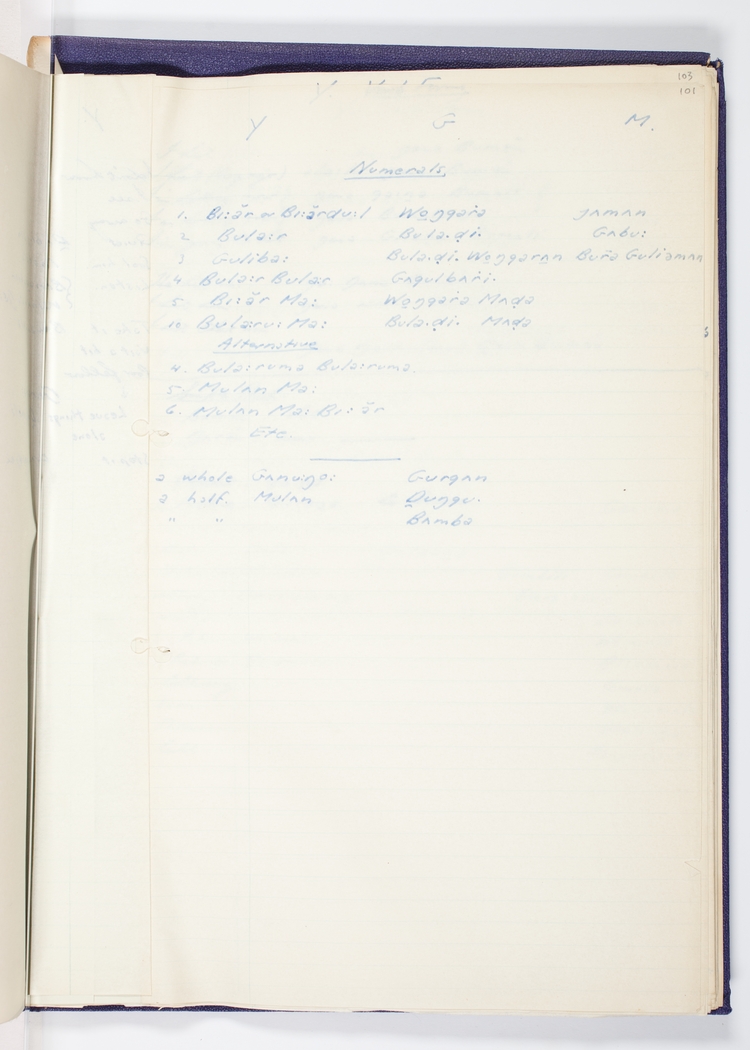 103
101
Y G M.
Numerals.
1. Bi:ăr or Bi:ărdu:l Woŋgara ɲʌmʌn
2 Bula:r Bula.ḍi. Gʌbu:
3 Guliba: Bula.di. Woŋgarʌn Bura Guliamʌn
4 Bula:r Bula:r Gʌgulbʌri.
5 Bi:ăr Ma: Woŋgara Mʌḍa
10 Bula:ru: Ma: Bula.ḍi. Mʌḍa
Alternative
4. Bula:ruma Bula:ruma.
5. Mulʌn Ma:
6. Mulʌn Ma: Bi:ăr
Etc.
a whole Gʌnu:ŋa: Gurgʌn
a half. Mulʌn Ḏuŋgu.
" " Bʌmba